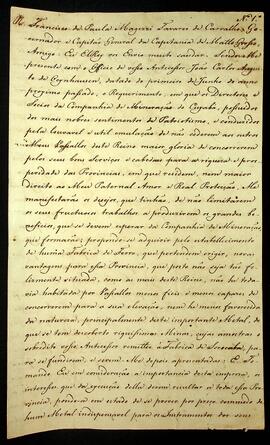 Nº 1º
Francisco de Paula Magessi Tavares de Carvalho, Go-
vernador e Capitão General da Capitania de Matto Grosso
Amigo. Eu ElRey vos Envio muito saudar. Sendo-Me
presente com o Officio de vosso Antecessor João Carlos Augusto
de Oeynhausen, datado de primeiro de Junho do anno
proximo passado, o Requerimento, em que os Directores e
Socios da Companhia de Mineração do Cuyabá, possuidos
dos mais nobres sentimentos de Patriotismo, e conduzidos
pela louvavel e util emulação de não cederem aos outros
Meus Vassallos deste Reino maior gloria de concorrerem
pelos seus bons Serviços e cabedaes para a riqueza e prosperi-
dade das Provincias, em que residem, nem maior
direito ao Meu Paternal Amor e Real Protecção, Me
manifestarão os desejos, que tinhão, de não limitarem
os seus fructuosos trabalhos a produzirem os grandes be-
neficios, que se devem esperar da Companhia de Mineração
que formarão; propondo-se adquirir pelo estabelecimento
de huma Fabrica de Ferro, que pertendem erigir, novas
vantagens para essa Provincia, que posto não seja tão fe-
lizmente situada, como as mais deste Reino, não he toda-
via habitada por Vassallos menos fieis, e menos capazes de
concorrerem para a sua riqueza, nem he mais favorecida
da natureza, principalmente deste importante Metal, de
que se tem descoberto riquissimas Minas, cujas amostras o
sobredito vosso Antecessor remetteo á Fabrica de Sorocaba, para
se fundirem, e serem-Me depois apresentadas: E To-
mando Eu em consideração a importancia desta empreza,
interesses que da execução della devem resultar a toda essa Pro-
vincia, pondo-a em estado de se prover por preço commodo de
hum Metal indispensavel para os Instrumentos dos seus